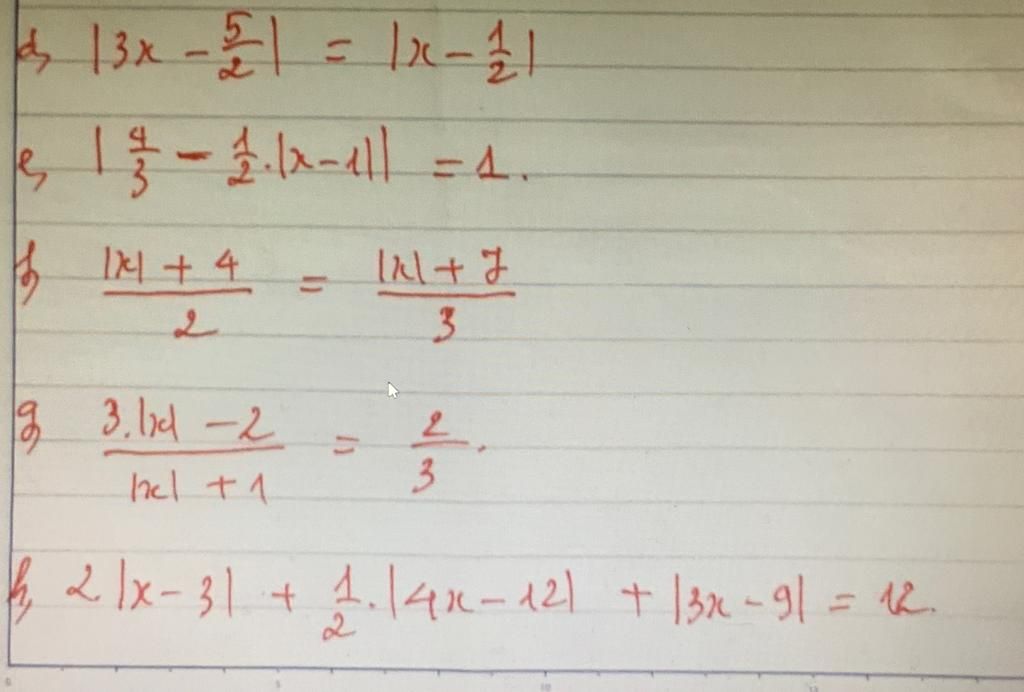 d, |3x - 5/2| = |x - 1/2|
e, |4/3 - 1/2 . |x - 1|| = 1.
f, (|x| + 4)/2 = (|x| + 7)/3
g, (3.|x| - 2)/(|x| + 1) = 2/3.
h, 2 |x - 3| + 1/2 . |4x - 12| + |3x - 9| = 12.